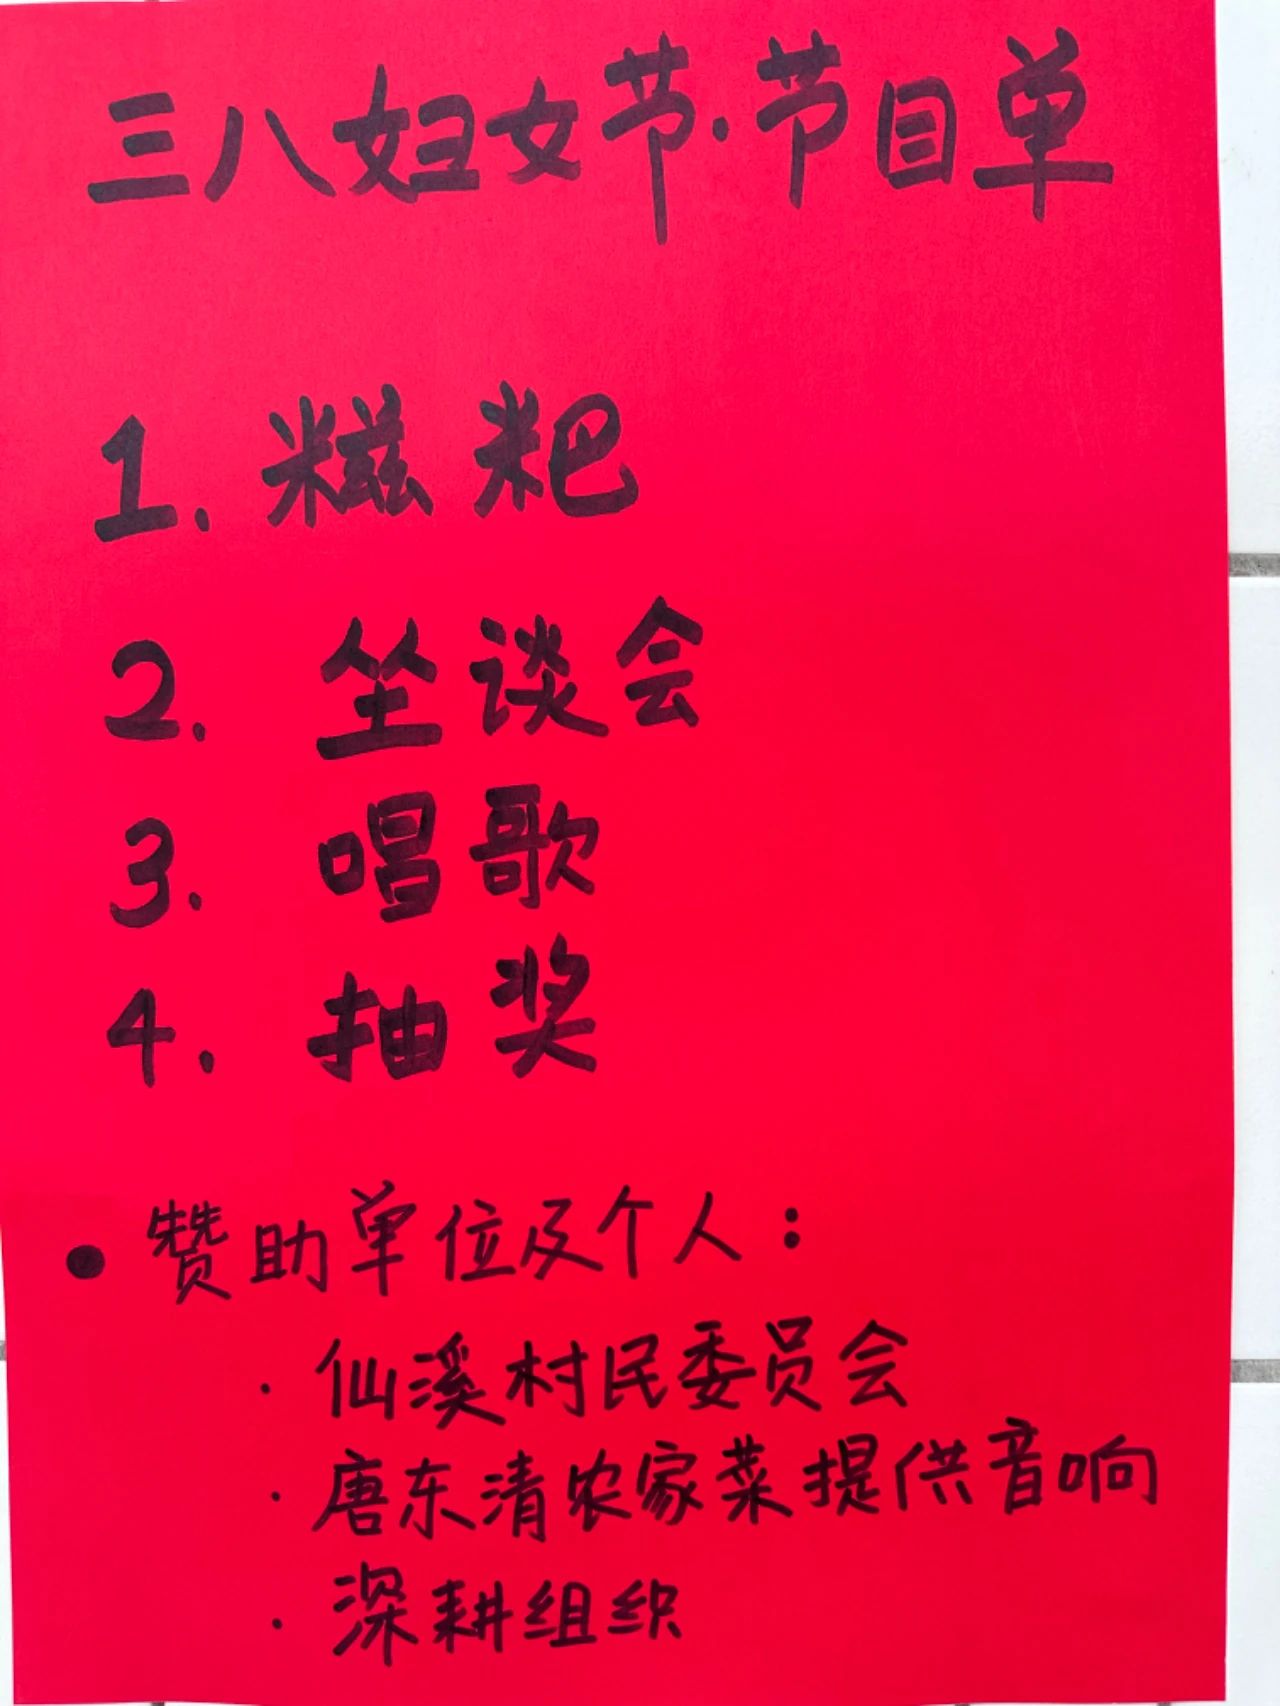 三八妇女节·节目单
1. 糍粑
2. 坐谈会
3. 唱歌
4. 抽奖
● 赞助单位及个人：
· 仙溪村民委员会
· 唐东清农家菜提供音响
· 深耕组织